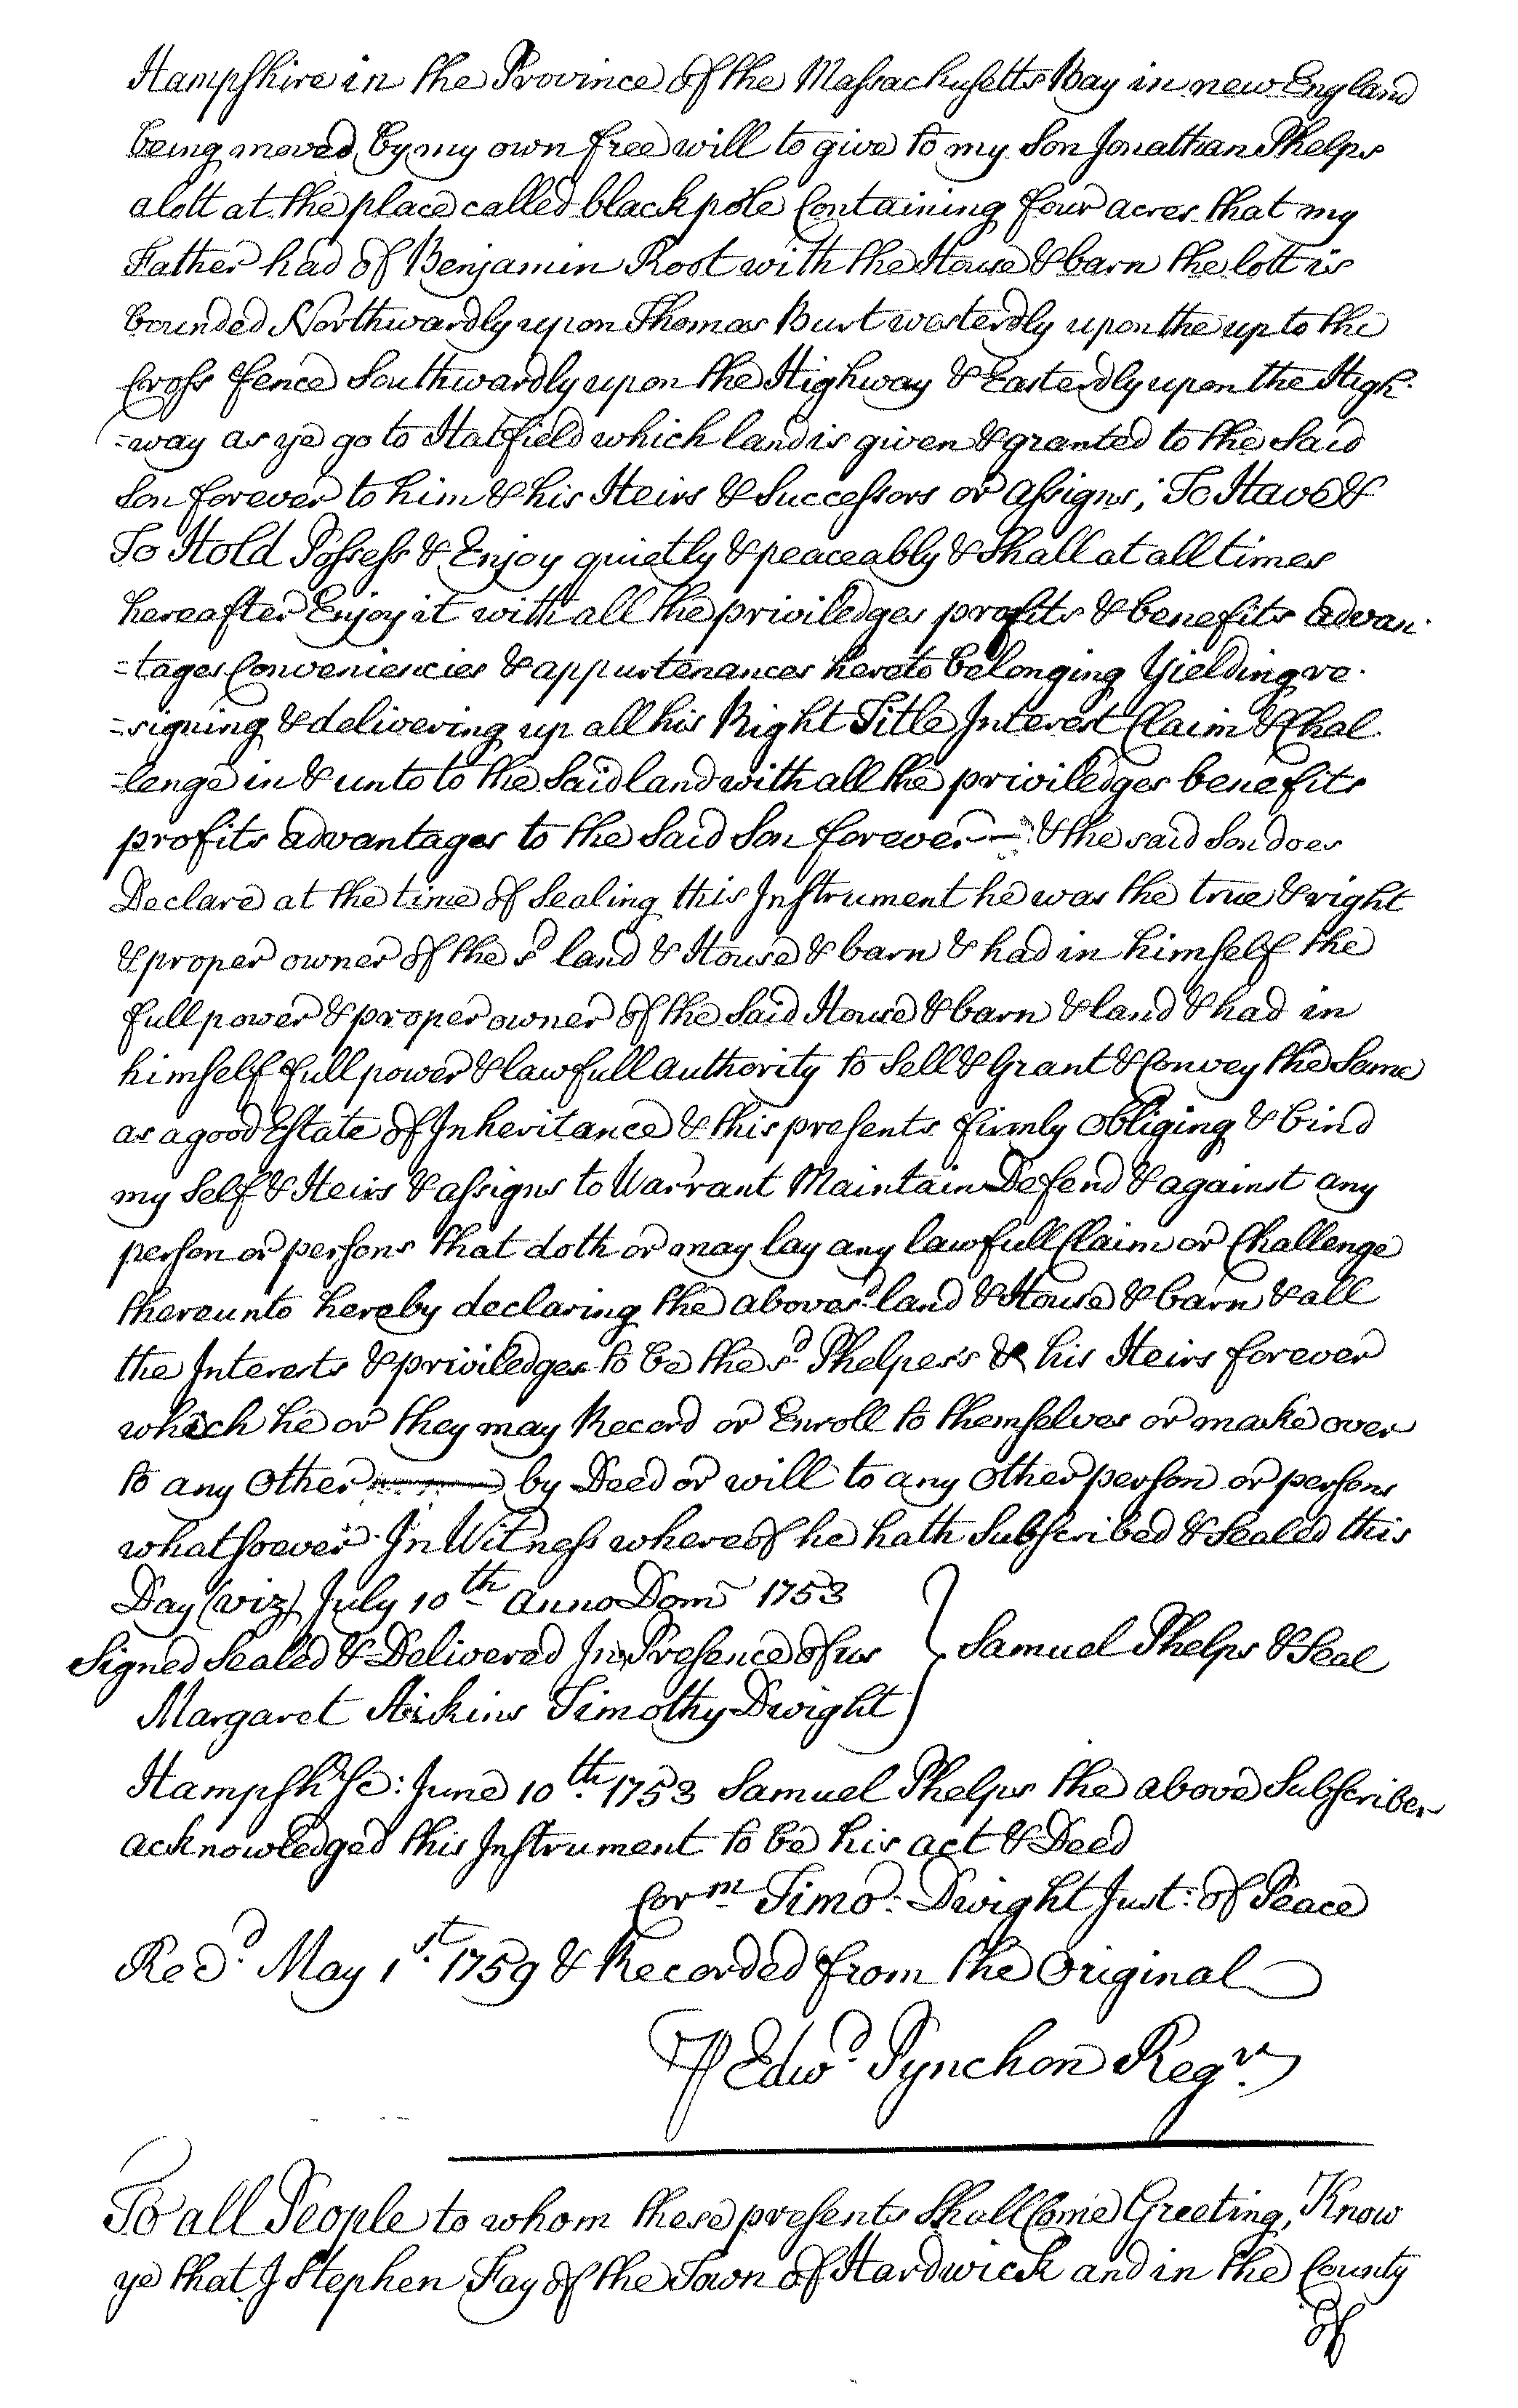 Hampshire in the Province of the Massachusetts Bay in new England
being moved by my own free will to give to my Son Jonathan Phelps
a lott at the place called black pole Containing four acres that my
Father had of Benjamin Root with the House & barn the lott is
bounded Northwardly upon Thomas Burt westerdly upon the up to the
Cross fence Southwardly upon the Highway & Easterdly upon the High-
=way as ye go to Hatfield which land is given & granted to the Said
Son forever to him & his Heirs & Successors or assigns; To Have &
To Hold Possess & Enjoy quietly & peaceably & Shall at all times
hereafter Enjoy it with all the priviledges profits & benefits advan-
=tages Conveniencies & appurtenances hereto belonging Yielding re-
=signing & delivering up all his Right Title Interest Claim & Chal-
=lenge in & unto to the Said land with all the priviledges benefits
profits advantages to the Said Son forever — & the said Son does
Declare at the time of Sealing this Instrument he was the true & right
& proper owner of the sd land & House & barn & had in himself the
full power & proper owner of the Said House & barn & land & had in
himself full power & lawfull authority to Sell & Grant & Convey the Same
as a good Estate of Inheritance & this presents firmly Obliging & bind
my Self & Heirs & assigns to Warrant Maintain Defend & against any
person or persons that doth or may lay any lawfull Claim or Challenge
thereunto hereby declaring the aboves.d land & House & barn & all
the Interests & priviledges to be the sd Phelps's & his Heirs forever
which he or they may Record or Enroll to themselves or make over
to any Other by Deed or will to any other person or persons
whatsoever. In Witness whereof he hath Subscribed & Sealed this
Day (viz) July 10th anno Dom 1753
Signed Sealed & Delivered In Presence of us } Samuel Phelps & Seal
Margaret Aickins Timothy Dwight
Hampshr Sc: June 10th 1753 Samuel Phelps the above Subscriber
acknowledged this Instrument to be his act & Deed
Corm Timo: Dwight Just: of Peace
Recd. May 1st. 1759 & Recorded from the Original
P Edwd Pynchon Regr.
To all People to whom these presents Shall Come Greeting, Know
ye that I Stephen Fay of the Town of Hardwick and in the County
of